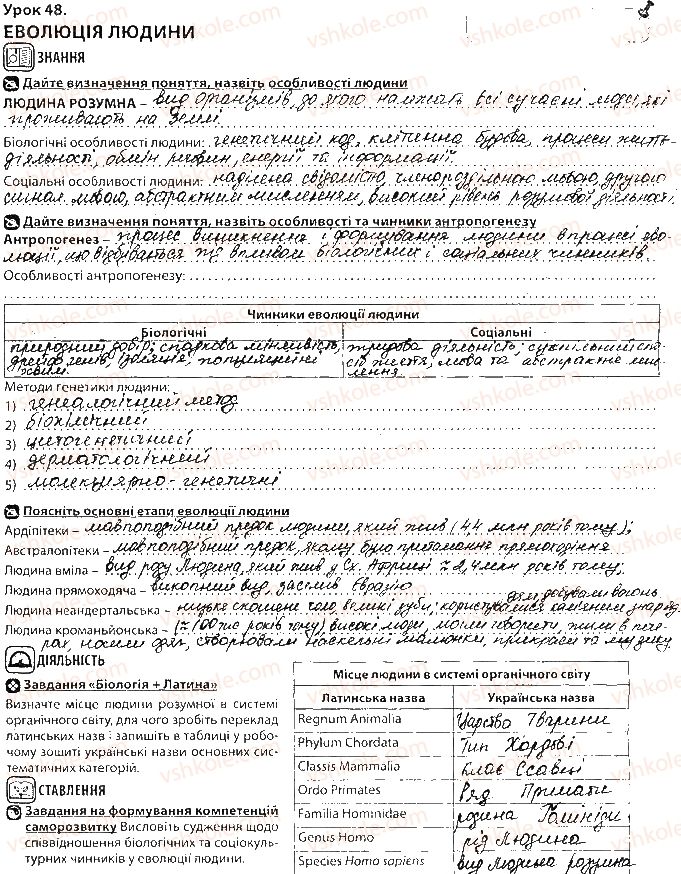 Урок 48.
ЕВОЛЮЦІЯ ЛЮДИНИ
ЗНАННЯ
Дайте визначення поняття, назвіть особливості людини
ЛЮДИНА РОЗУМНА – вид організмів, до якого належать всі сучасні люди, які
проживають на Землі.
Біологічні особливості людини: генетичний код, клітинна будова, процеси життє-
діяльності, обмін речовин, енергії та інформації.
Соціальні особливості людини: наділена свідомістю, членороздільною мовою, другою
сигнал. мовою, абстрактним мисленням, високий рівень розумової діяльності.
Дайте визначення поняття, назвіть особливості та чинники антропогенезу
Антропогенез – процес виникнення і формування людини в процесі ево-
люції, що відбувається під впливом біологічних і соціальних чинників.
Особливості антропогенезу:
Чинники еволюції людини
Біологічні Соціальні
природний добір, спадкова мінливість, трудова діяльність, суспільний спо-
дрейф генів, ізоляція, популяційні сіб життя, мова та абстрактне мис-
хвилі лення.
Методи генетики людини:
1) генеалогічний метод
2) біохімічний
3) цитогенетичний
4) дерматологічний
5) молекулярно - генетичні
Поясніть основні етапи еволюції людини
Ардіпітеки – мавпоподібний предок людини, який жив (4,4 млн років тому);
Австралопітеки – мавпоподібний предок, якому було притаманне прямоходіння
Людина вміла – вид роду Людина, який жив у Сх. Африці ≈ 2,4 млн років тому.
Людина прямоходяча – викопний вид, заселив Євразію
Людина неандертальська – низьке скошене чоло, великі зуби, користувалися камінним знаряд.
дям, добували вогонь
Людина кроманьйонська – (≈100 тис років тому) високі люди, могли говорити, жили в пече-
рах, носили одяг, створювали наскельні малюнки, прикраси та музику.
ДІЯЛЬНІСТЬ
Завдання «Біологія + Латина»
Визначте місце людини розумної в системі
органічного світу, для чого зробіть переклад
латинських назв і запишіть в таблиці у робо-
чому зошиті українські назви основних сис-
тематичних категорій.
СТАВЛЕННЯ
Завдання на формування компетенцій
саморозвитку Висловіть судження щодо
співвідношення біологічних та соціокуль-
турних чинників у еволюції людини.
Місце людини в системі органічного світу
Латинська назва Українська назва
Regnum Animalia Царство Тварини
Phylum Chordata Тип Хордові
Classis Mammalia Клас Ссавці
Ordo Primates Ряд Примати
Familia Hominidae родина Гомініди
Genus Homo рід Людина
Species Homo sapiens вид Людина розумна